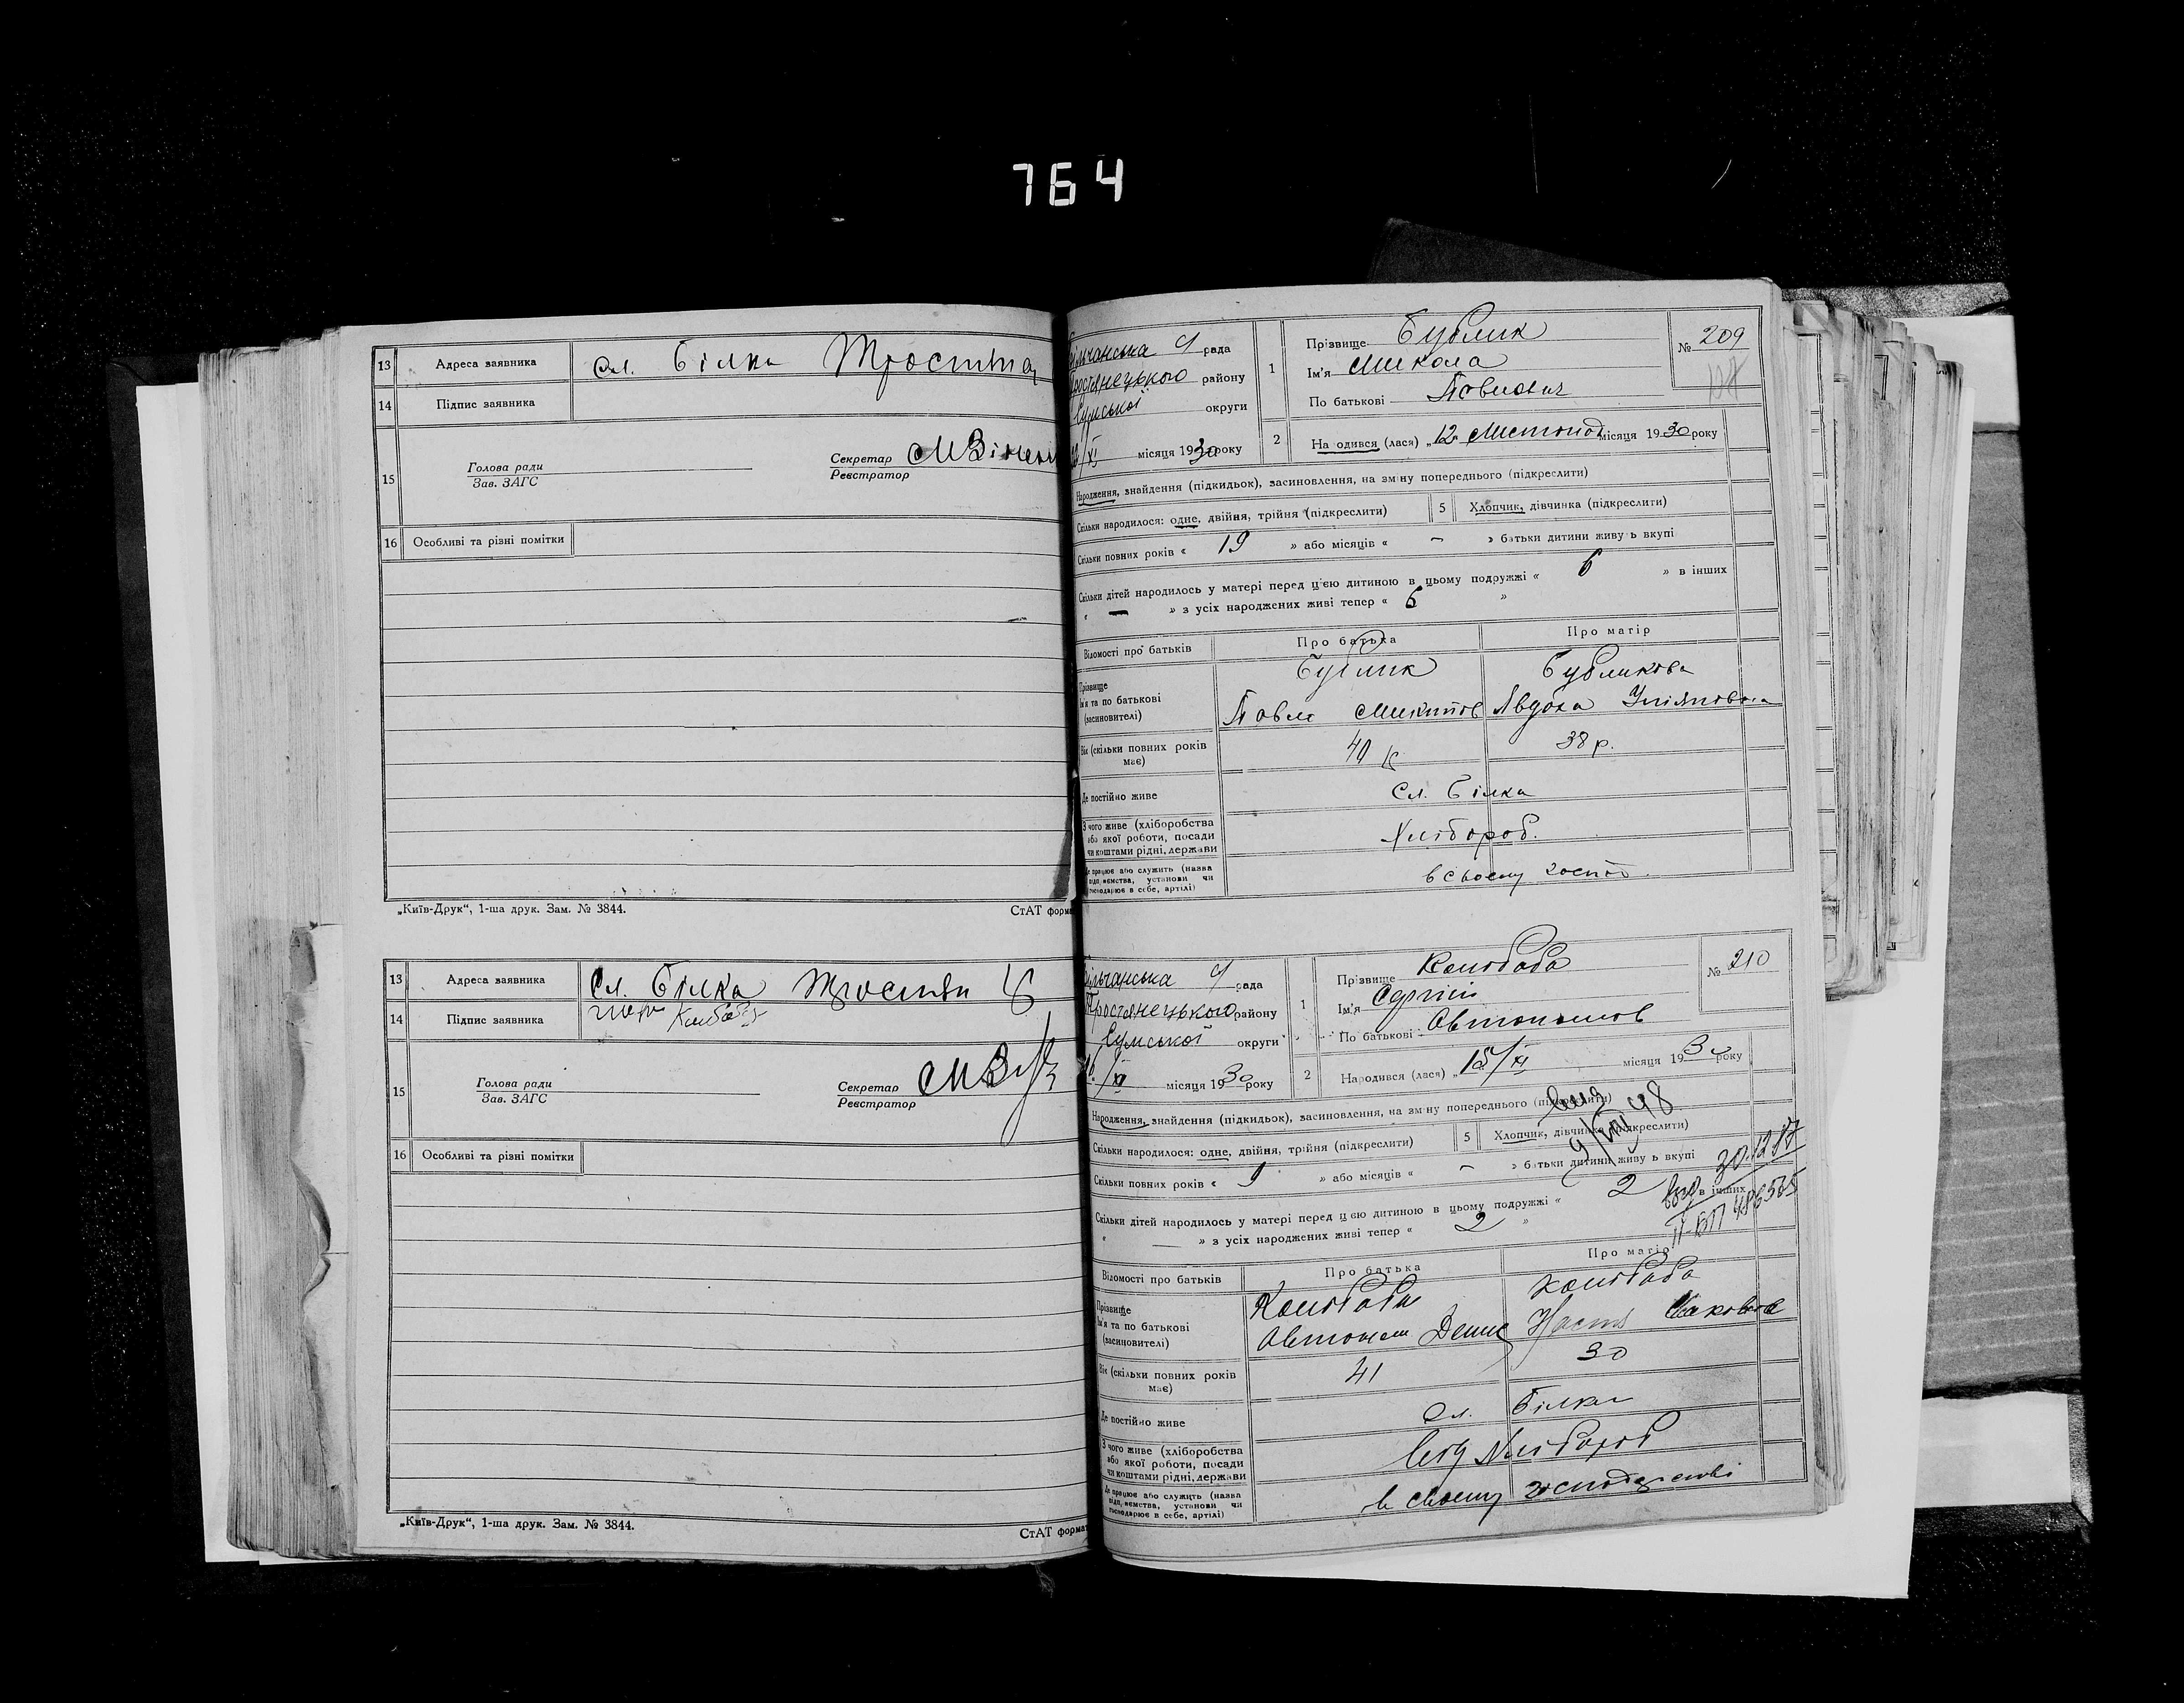 764
13 Адреса заявника сл. Білка Тростя
14 Підпис заявника
15 Голова ради
Зав. ЗАГС
Секретар
Реєстратор
16 Особливі та різні помітки
„Київ-Друк“, 1-ша друк. Зам. № 3844.
СтАТ форма
13 Адреса заявника Сл. Білка Тростян
14 Підпис заявника
15 Голова ради
Зав. ЗАГС
Секретар
Реєстратор
16 Особливі та різні помітки
„Київ-Друк“, 1-ша друк. Зам. № 3844.
СтАТ формат
більчанська с/ рада
Тростянецького району
Сумської округи
/XI місяця 1930 року
1 Прізвище Бублик
Ім'я Микола
По батькові Павлович
№ 209
2 На одився (лася) „12„ Листопад місяця 1930 року
Народження, знайдення (підкидьок), засиновлення, на зміну попереднього (підкреслити)
Скільки народилося: одне, двійня, трійня (підкреслити) 5 Хлопчик, дівчинка (підкреслити)
Скільки повних років « 19 » або місяців « – » батьки дитини живуть вкупі
Скільки дітей народилось у матері перед цією дитиною в цьому подружжі « 6 » в інших
« — » з усіх народжених живі тепер « 6 »
Відомості про батьків Про батька Про матір
Прізвище
Ім'я та по батькові
(засиновителі)
Бублик Бубликова
Павло Микитов Явдоха
Вік (скільки повних років має) 40 38 р.
Де постійно живе Сл. Білка
З чого живе (хліборобства
або якої роботи, посади
чи коштами рідні, держави
Хлібороб.
Де працює або служить (назва
підприємства, установи чи
господарює в себе, артілі)
в своєму госпо
Більчанська с/ рада
Тростянецького району
Сумської округи
16/XI місяця 1930 року
1 Прізвище Колібаба
Ім'я Сергій
По батькові Автономов
№ 210
2 Народився (лася) „15/XI місяця 1930 року
Народження, знайдення (підкидьок), засиновлення, на зміну попереднього (підкреслити)
Скільки народилося: одне, двійня, трійня (підкреслити) 5 Хлопчик, дівчинка (підкреслити)
Скільки повних років « 9 » або місяців « – » батьки дитини живу ь вкупі
Скільки дітей народилось у матері перед цією дитиною в цьому подружжі « 2 » в інших
« — » з усіх народжених живі тепер « 2 »
30.12.87
Відомості про батьків Про батька Про матір
Прізвище
Ім'я та по батькові
(засиновителі)
Колібаба Колібаба
Автоном Денис Настя
Вік (скільки повних років має) 41 30
Де постійно живе Сл. Білка
З чого живе (хліборобства
або якої роботи, посади
чи коштами рідні, держави
Хлібороб
Де працює або служить (назва
підприємства, установи чи
господарює в себе, артілі)
в своєму господарстві